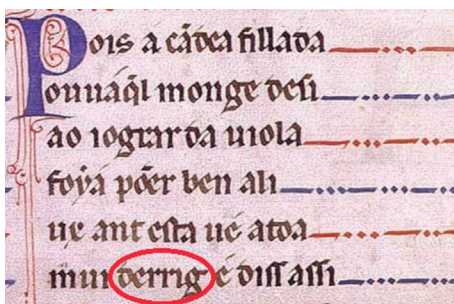 Pois a cãdea fillada
ouuáq̃l monge desi
ao iograr da uiola
foyá põer ben ali
ux ant esta ué atoa
mui derrig é diss assi